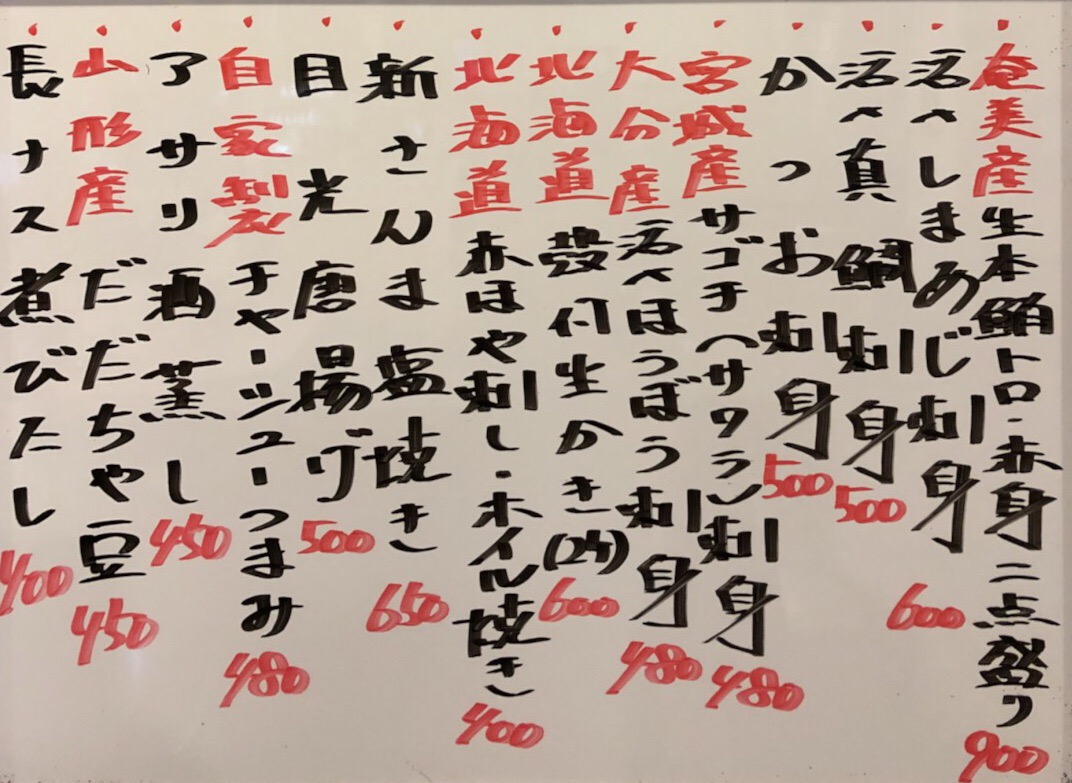 奄美産生本鮪トロ・赤身二点盛り 900
活〆しまあじ刺身 600
活〆真鯛刺身 500
かつお刺身 500
宮城産サゴチ(サワラ)刺身 480
大分産活〆ほうぼう刺身 480
北海道殻付生かき(2ヶ) 600
北海道赤ほや刺し・ホイル焼き 400
新さんま塩焼き 650
目光唐揚げ 500
自家製チャーシューつまみ 480
アサリ酒蒸し 450
山形産だだちゃ豆 450
長ナス煮びたし 400